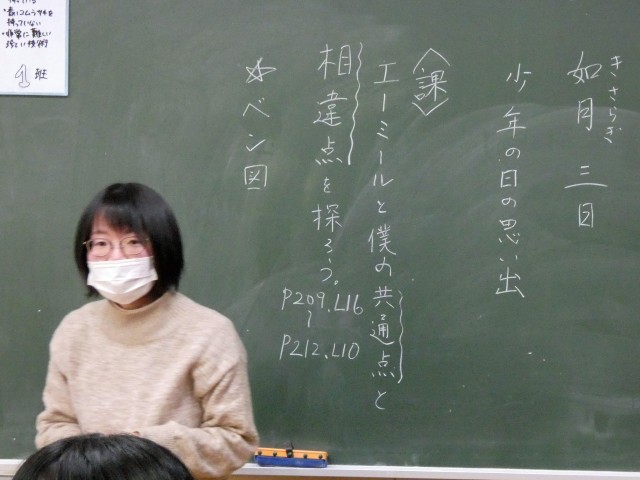 きさらぎ
如月 三日
少年の日の思い出
〈課〉
エーミールと僕の共通点と
相違点を探そう。
P209.L16
〜
P212.L10
☆ベン図
・着いコムラサキを
持っていない
・非常に難しい
珍しい技術
1班